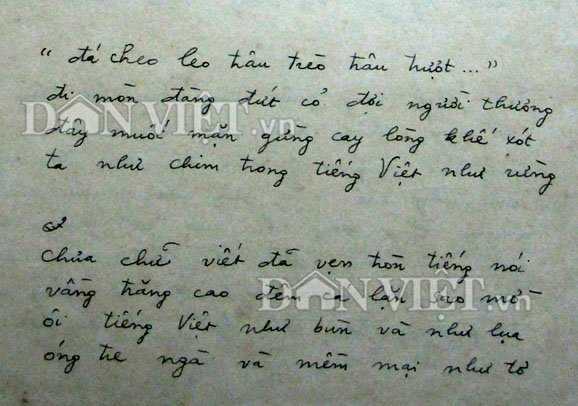 “ đá cheo leo trâu trèo trâu trượt ... ”
đi mòn đàng đứt cỏ đợi người thương
DÂNVIỆT.vn
đây muối mặn gừng cay lòng khế xót
ta như chim trong tiếng Việt như rừng
chưa chữ viết đã vẹn tròn tiếng nói
vầng trăng cao đêm cá lặn sao mờ
DÂNVIỆT.vn
ôi tiếng Việt như bùn và như lụa
óng tre ngà và mềm mại như tơ